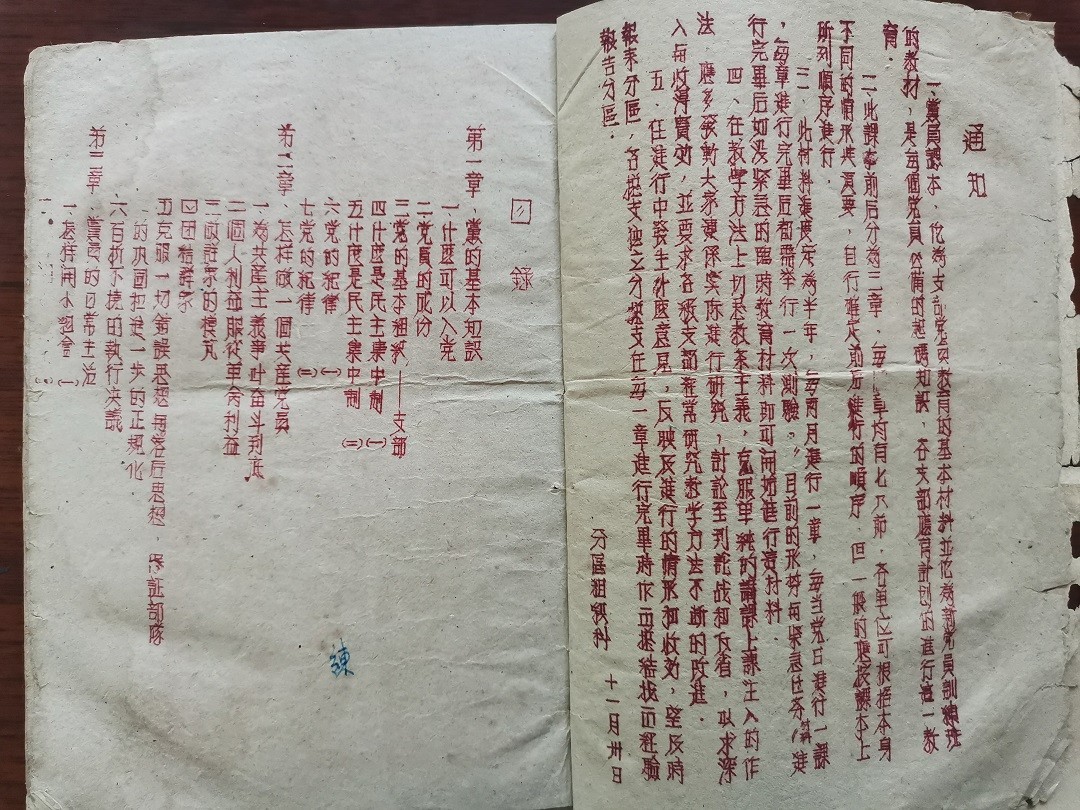 通知
一、黨員課本，作為支部党員教育的基本材料並作為新党員訓練班
的教材，是每個党員必備的起碼知識，各支部應有計划的進行這一教
育。
二、此課本前后分為三章，每一章均有七八節，各單位可根据本身
不同的情形與須要，自行確定前后進行的順序，但一般的應按課本上
所列順序進行。
三、此材料進度定為半年，每兩月進行一章，每当党日進行一課
，每章進行完畢后都需举行一次測驗。目前的形势与緊急任务
行完畢后如没緊急的臨時教育材料即可開始進行這材料。
四、在教学方法上切忌教条主義，克服單純的講課上課注入的作
法，應多發動大家連系实际進行研究，討論至到論战和反省，以求深
入与收得實効，並要求各級支部經常研究教学方法不断的改進。
五、在進行中發生什麼意見，反映及進行的情形和收効，望及時
報告分區，各
分區組織科
十一月卅日
目錄
第一章、黨的基本知識
一、什麼可以入党
二、党員的成份
三、党的基本組織——支部
四、什麼是民主集中制（一）
五、什麼是民主集中制（二）
六、党的紀律（一）
七、党的紀律（二）
第二章、怎样做一個共産党員
一、為共産主義事业奋斗到底
二、個人利益服從革命利益
三、做群眾的模范
四、团結群众
五、克服一切錯誤思想与落后思想，保証部隊
的巩固和進一步的正規化
六、百折不撓的執行决議
第三章、黨的日常生活
一、怎样開小組會（一）
練